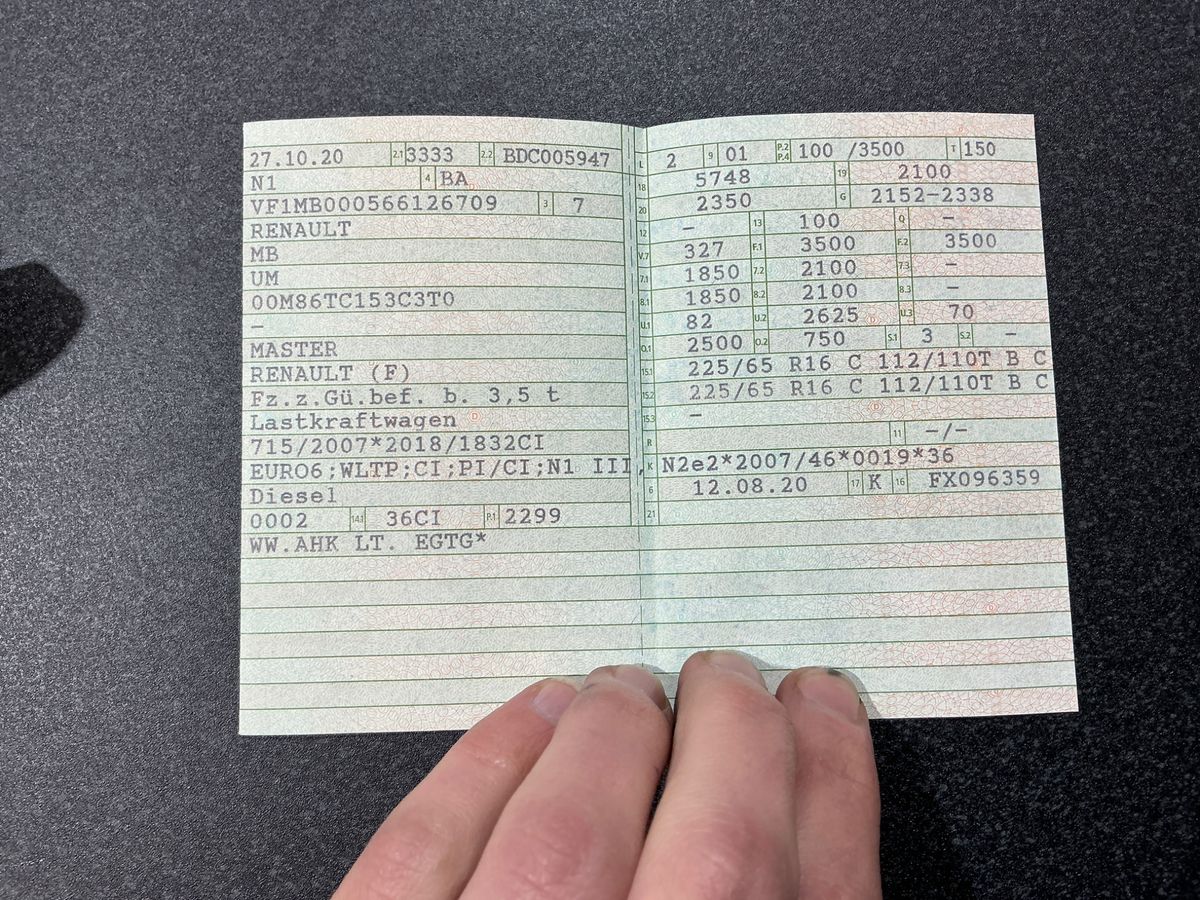 27.10.20 2.1 3333 2.2 BDC005947
N1 4 BA
VF1MB000566126709 3 7
RENAULT
MB
UM
00M86TC153C3T0
–
MASTER
RENAULT (F)
Fz.z.Gü.bef. b. 3,5 t
Lastkraftwagen
715/2007*2018/1832CI
EURO6;WLTP;CI;PI/CI;N1 III, K N2e2*2007/46*0019*36
Diesel
0002 14.1 36CI P.1 2299
WW.AHK LT. EGTG*
L 2 9 01 P.2 P.4 100 /3500 T 150
18 5748 19 2100
20 2350 G 2152-2338
12 – 13 100 Q –
V.7 327 F.1 3500 F.2 3500
7.1 1850 7.2 2100 7.3 –
8.1 1850 8.2 2100 8.3 –
U.1 82 U.2 2625 U.3 70
O.1 2500 O.2 750 S.1 3 S.2 –
15.1 225/65 R16 C 112/110T B C
15.2 225/65 R16 C 112/110T B C
15.3 –
R 11 –/–
6 12.08.20 17 K 16 FX096359
21